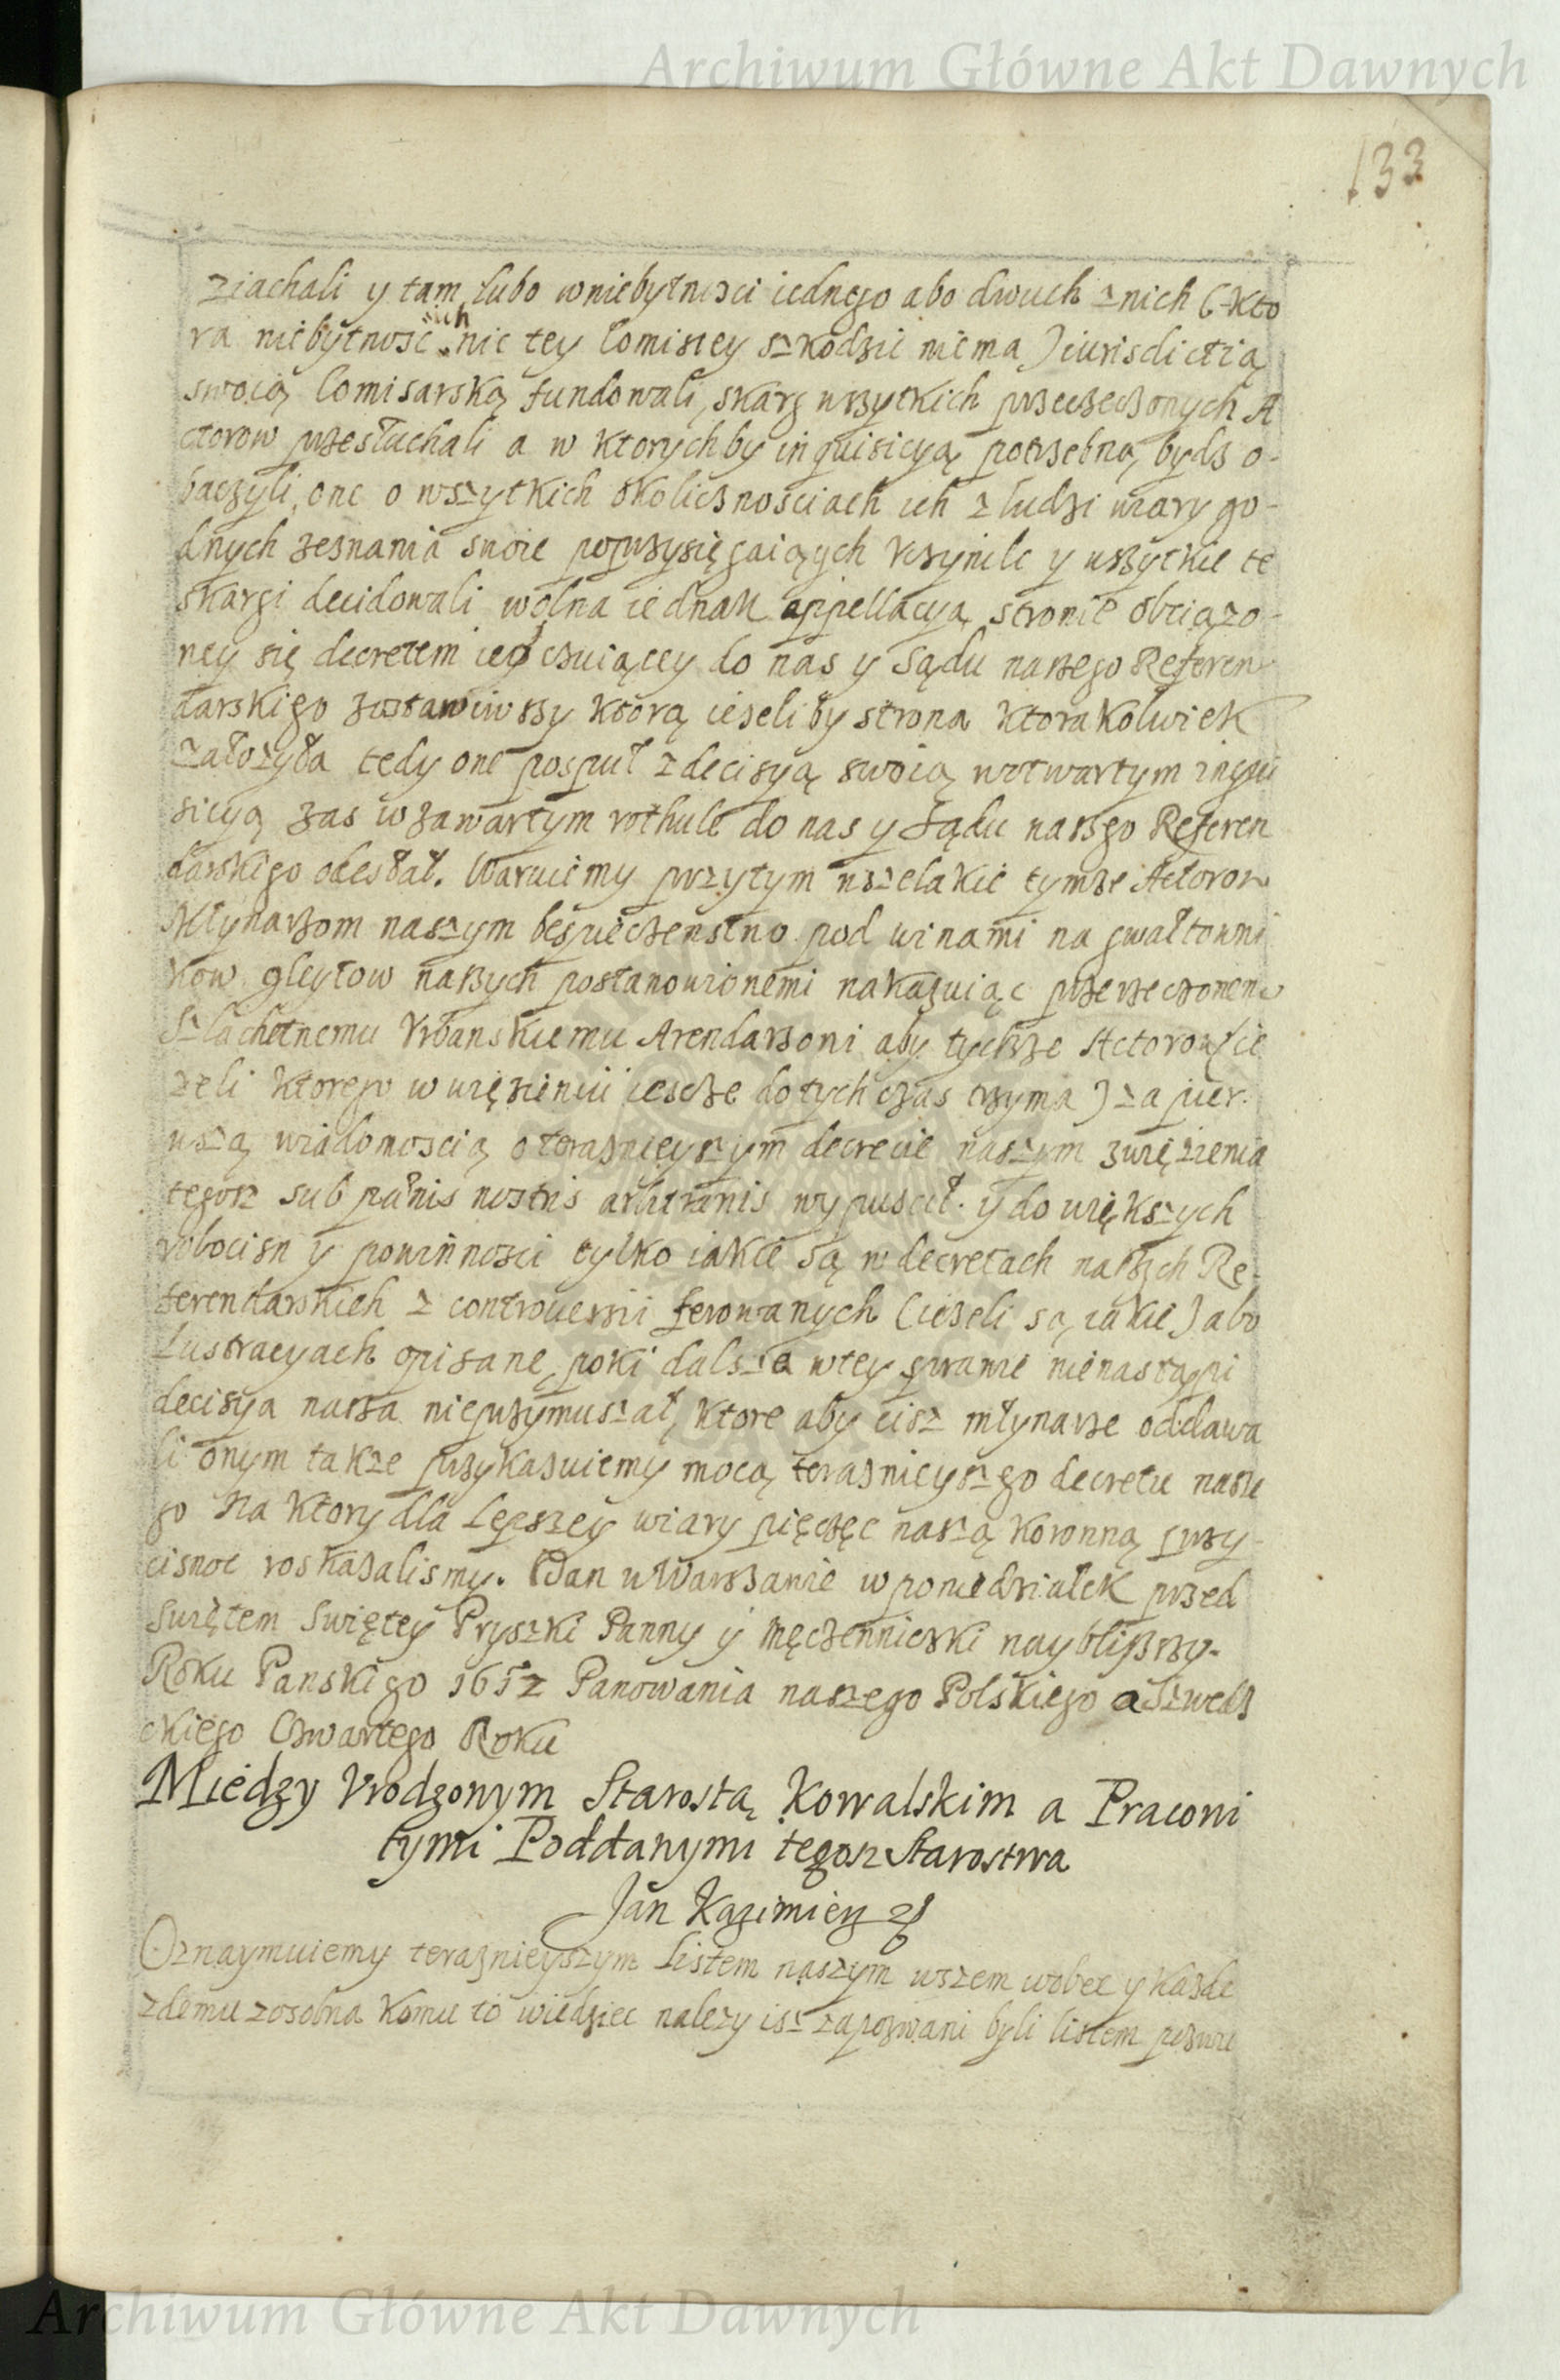 Archiwum Główne Akt Dawnych
133
ziachali y tam lubo w niebytnosci iednego abo dwuch z nich (kto
ra niebytnosc ich nic tey Comisiey szkodzic nie ma) iurisdictią
swoią Comisarską fundowali, skarg wszytkich przerzeczonych A
ctorow przesłuchali a w ktorychby inquisicyą potrzebną bydz o-
baczyli, one o wszytkich okolicznosciach ich z ludzi wiary go-
dnych zeznania swoie poprzysięgaiących vczynili y wszytkie te
skargi decidowali wolną iednak appellacyą stronie obciązo-
ney się decretem ich czuiącey do nas y Sądu naszego Referen
darskiego zostawiwszy ktorą iezeliby strona ktorakolwiek
załozyła tedy one pospuł z decisyą swoią w otwartym inqui
sicyą zas w zawartym rothule do nas y Sądu naszego Referen
darskiego odesłał. Waruiemy przytym wszelakie tymze Actorom
Młynarzom naszym bespieczenstwo pod winami na gwałtowni
kow gleytow naszych postanowionemi nakazuiąc przerzeczonemu
Szlachetnemu Vrbanskiemu Arendarzowi aby tychze Actorow (ie
zeli ktorego w więzieniu iescze do tych czas trzyma) za pier-
wszą wiadomoscią o teraznieyszym decrecie naszym z więzienia
tegosz sub paenis nostris arbitrariis wypuscił. y do większych
robocizn y powinnosci tylko iakie są w decretach naszych Re-
ferendarskich z controuersii ferowanych (iezeli są iakie) abo
Lustracyach opisane, poki dalsza w tey sprawie nie nastąpi
decisya nasza nieprzymuszał, ktore aby cisz młynarze oddawa
li onym takze przykazuiemy mocą teraznieyszego decretu nasze
go Na ktory dla Lepszey wiary pięczęc naszą koronną przy-
cisnoc roskazalismy. Dan w Warszawie w poniedziałek przed
Swiętem Swiętey Pryszki Panny y męczenniczki nayblizszy.
Roku Panskiego 1652 Panowania naszego Polskiego a Szwedz
kiego Czwartego Roku
Miedzy Vrodzonym Starostą Kowalskim a Pracowi
tymi Poddanymi tegosz Starostwa
Jan Kazimierz
Oznaymuiemy teraznieyszym Listem naszym wszem wobec y kazde
zdemu zosobna komu to wiedziec nalezy isz zapozwani byli listem pozwu
Archiwum Główne Akt Dawnych